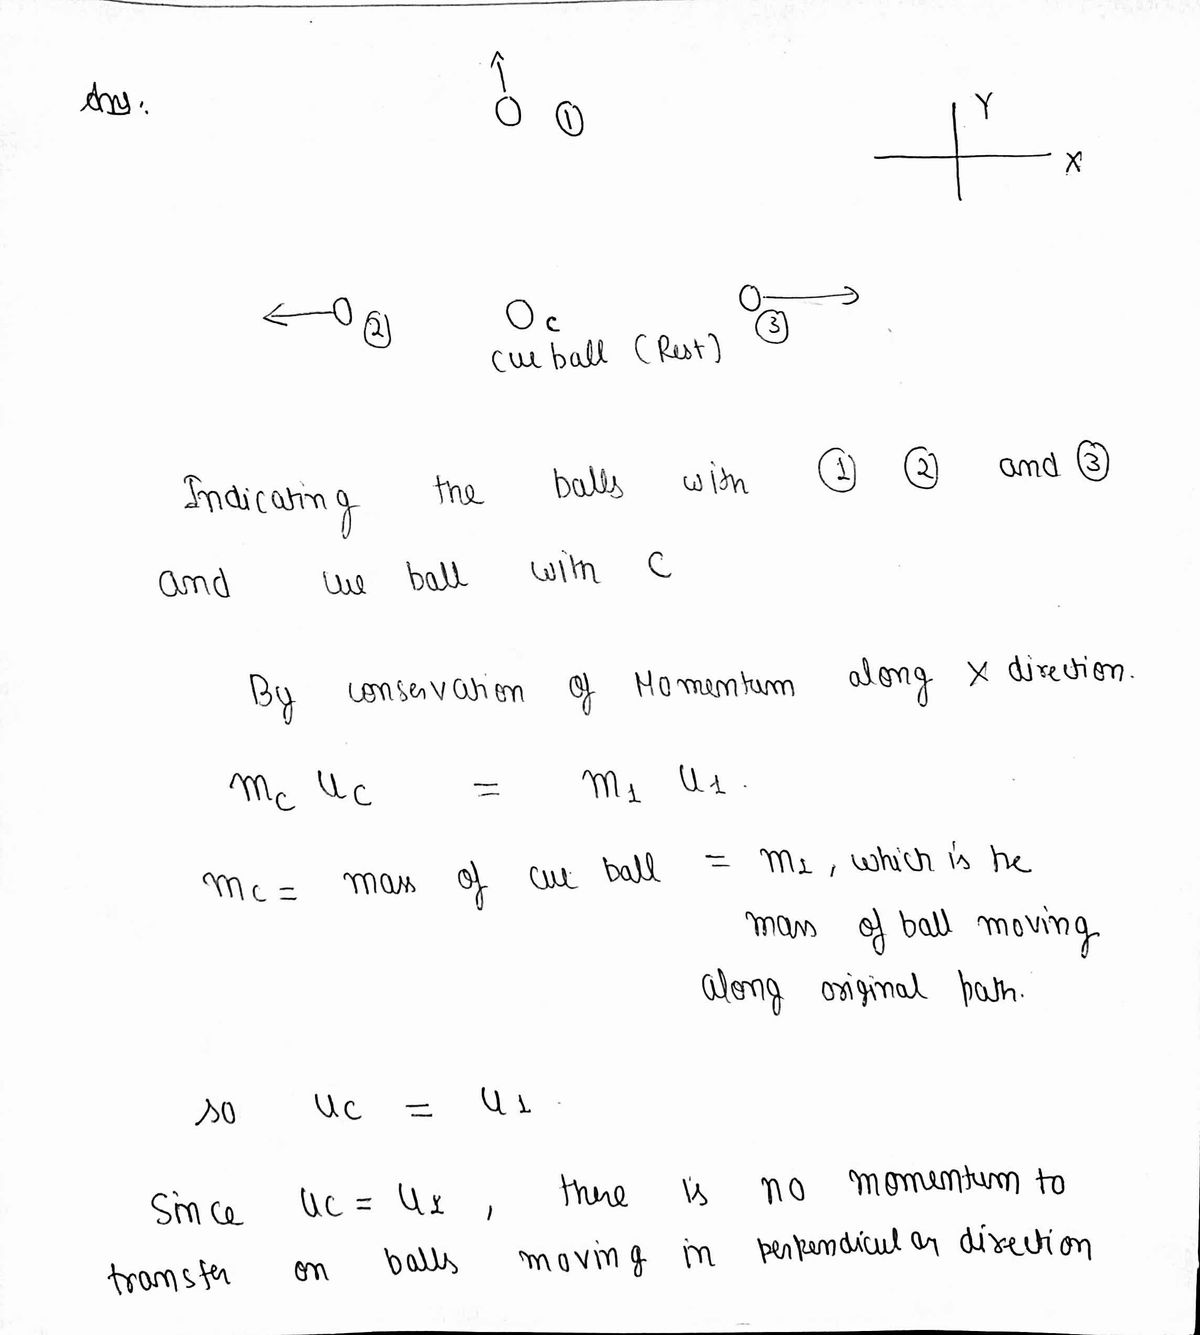 Ans.
①
Y
X
② c ③
cue ball (Rest)
Indicating the balls with ① ② and ③
and cue ball with C
By conservation of Momentum along X direction.
mc uc = m1 u1.
mc = mass of cue ball = m1, which is he
mass of ball moving
along original path.
so uc = u1.
Since uc = u1, there is no momentum to
transfer on balls moving in perpendicular direction